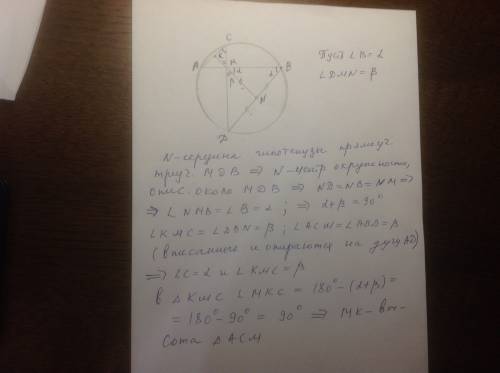 C
A
M
B
D
N
K
α
β
Пусть ∠B = α
∠DMN = β
N-середина гипотенузы прямоуг.
треуг. MDB ⇒ N-центр окружности,
опис. около MDB ⇒ ND=NB=NM ⇒
⇒ ∠NMB = ∠B = α ; ⇒ α+β = 90°
∠KMC = ∠DMN = β ; ∠ACM = ∠ABD =
(вписанные и опираются на дугу AD)
⇒ ∠C = α и ∠KMC = β
В ΔKMC ∠MKC = 180° - (α+β) =
= 180° - 90° = 90° ⇒ MK - вы-
сота ΔACM